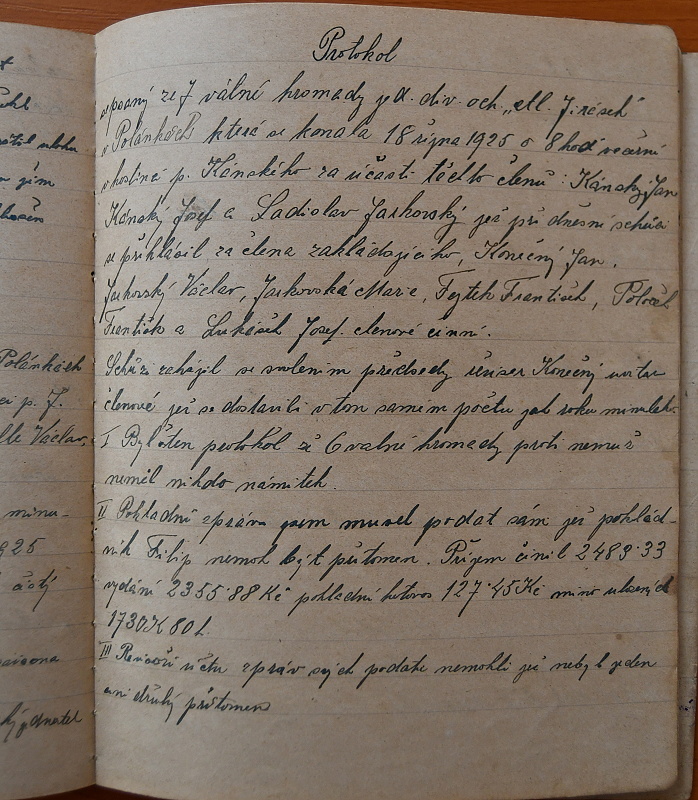 Protokol
sepsaný ze 7 valné hromady jed. div. och. „Al. Jirásek"
v Polánkách která se konala 18 října 1925 o 8 hod večerní
v hostinci p. Kánského za účasti těchto členů: Kánský Jan
Kánský Josef a Ladislav Jarkovský jež při dnešní schůzi
se přihlásil za člena zakládajícího, Konečný Jan,
Jarkovský Václav, Jarkovská Marie, Fejtek František,
František a Lukášek Josef. členové činní.
Schůzi zahájil se svolením předsedy Konečný
členové jež se dostavili v tom samém počtu jak roku minuleh.
I Byl čten protokol ze 6 valné hromady proti nemuž
neměl nikdo námitek.
II Pokladní zprávu jsem musel podat sám jež poklád-
ník Filip nemoh být přítomen. Příjem činil 2483·33
vydání 2355·88 Kč pokladní hotovos 127·45 Kč mimo uložených
1730 K 80 h.
III Revisoři účtu zpráv svých podati nemohli jež nebyl jeden
ani druhý přítomen
átil
jím
Polánkách
ci p. J.
Václav,
minu-
925
čistý
jednatel